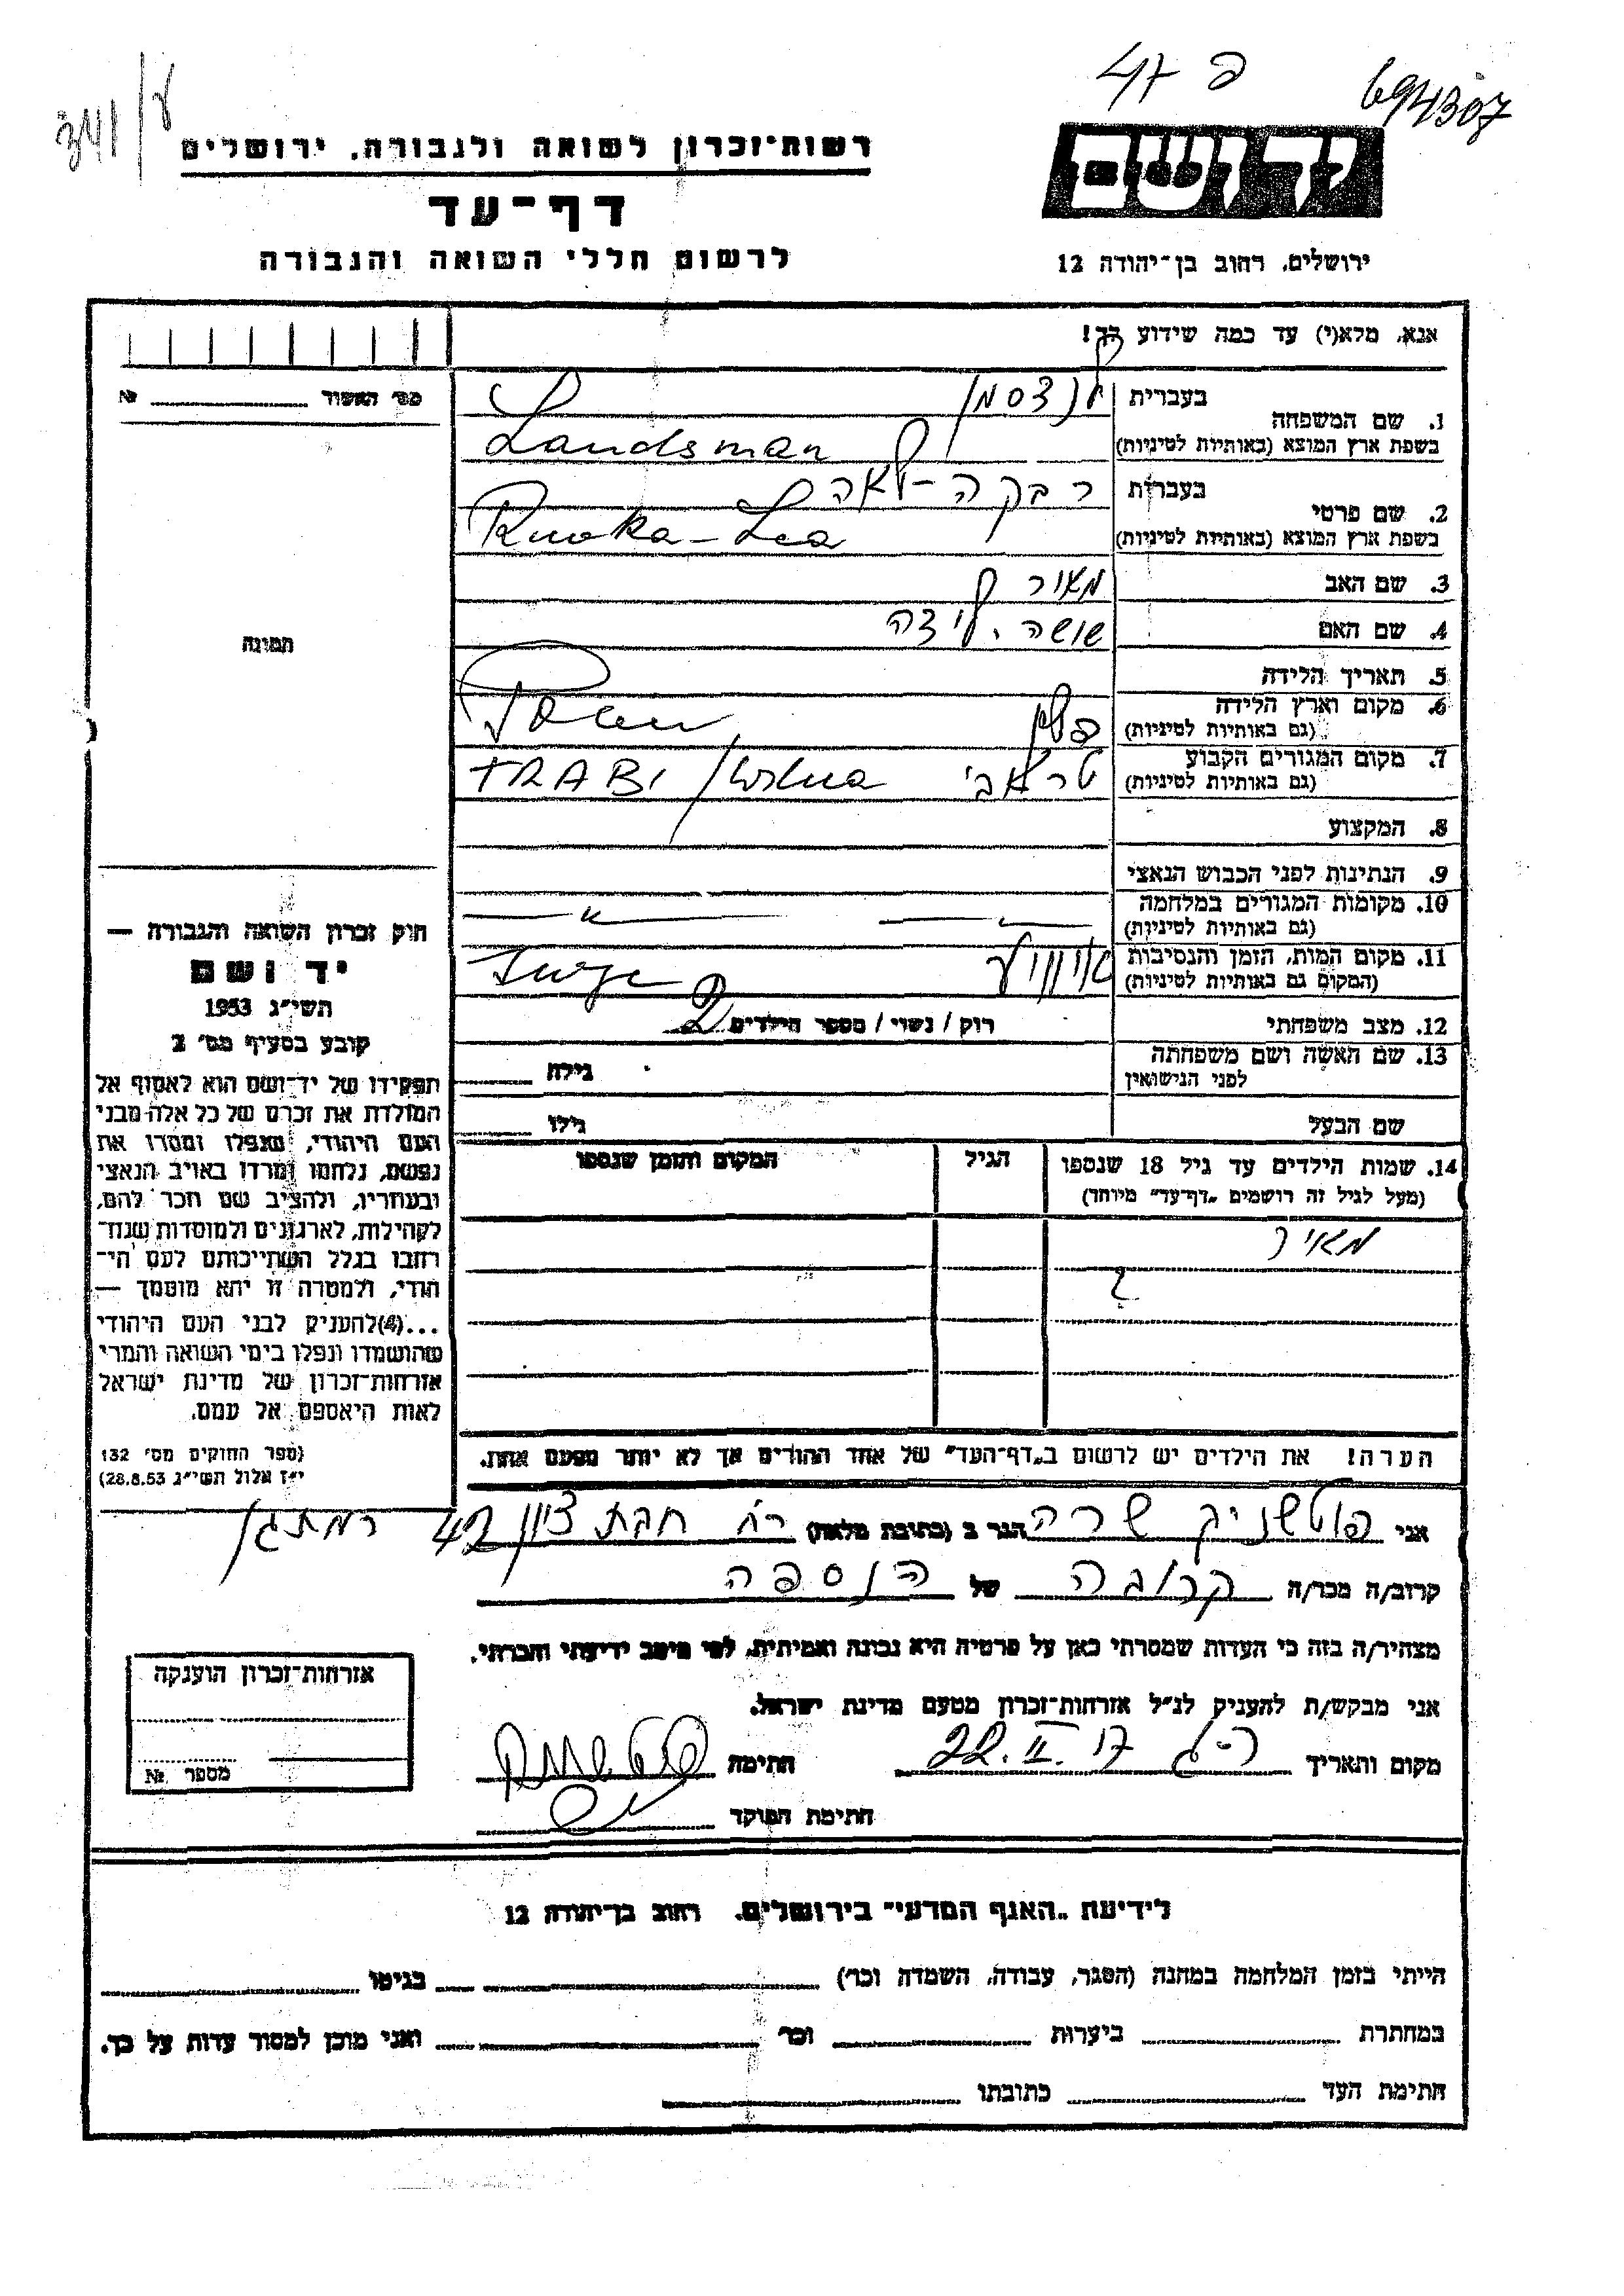 פ 47
694307
341/ע
רשות-זכרון לשואה ולגבורה, ירושלים
דף-עד
לרשום חללי השואה והגבורה
ידושם
ירושלים, רחוב בן-יהודה 12
אנא, מלא(י) עד כמה שידוע לך!
מס' האשור № 
תמונה
1. שם המשפחה
בעברית לנדסמן
בשפת ארץ המוצא (באותיות לטיניות) Landsman
2. שם פרטי
בעברית רבקה-לאה
בשפת ארץ המוצא (באותיות לטיניות) Rwka-Lea
3. שם האב מאיר
4. שם האם שושה
5. תאריך הלידה
6. מקום וארץ הלידה
(גם באותיות לטיניות) פולין
7. מקום המגורים הקבוע טראבי
(גם באותיות לטיניות) TRABI
8. המקצוע
9. הנתינות לפני הכבוש הנאצי
10. מקומות המגורים במלחמה
(גם באותיות לטיניות) — " —
11. מקום המות, הזמן והנסיבות
(המקום גם באותיות לטיניות)
12. מצב משפחתי רוק / נשוי / מספר הילדים 2
13. שם האשה ושם משפחתה
לפני הנישואין גילה
שם הבעל גילו
14. שמות הילדים עד גיל 18 שנספו הגיל המקום והזמן שנספו
(מעל לגיל זה רושמים „דף-עד" מיוחד)
מאיר
?
הערה! את הילדים יש לרשום ב„דף-העד" של אחד ההורים אך לא יותר מפעם אחת.
חוק זכרון השואה והגבורה —
יד ושם
תשי"ג 1953
קובע בסעיף מס' 2
תפקידו של יד-ושם הוא לאסוף אל
המולדת את זכרם של כל אלה מבני
העם היהודי, שנפלו ומסרו את
נפשם, נלחמו ומרדו באויב הנאצי
ובעוזריו, ולהציב שם וזכר להם,
לקהילות, לארגונים ולמוסדות שנח-
רבו בגלל השתייכותם לעם הי-
הודי, ולמטרה זו יהא מוסמך —
...(4) להעניק לבני העם היהודי
שהושמדו ונפלו בימי השואה והמרי
אזרחות-זכרון של מדינת ישראל
לאות היאספם אל עמם.
(ספר החוקים מס' 132
י"ז אלול תשי"ג 28.8.53)
אני פוטשניק שרה הגר ב (כתובת מלאה) רח חבת ציון 42 רמת גן
קרוב/ה מכר/ה קרובה של הנספה
מצהיר/ה בזה כי העדות שמסרתי כאן על פרטיה היא נכונה ואמיתית, לפי מיטב ידיעתי והכרתי.
אני מבקש/ת להעניק לנ"ל אזרחות-זכרון מטעם מדינת ישראל.
מקום ותאריך ר-ג 22.II.57 חתימה
חתימת הפוקד
אזרחות-זכרון הוענקה
מספר №
לידיעת „האגף המדעי" בירושלים, רחוב בן-יהודה 12
הייתי בזמן המלחמה במחנה (הסגר, עבודה, השמדה וכו') בגיטו
במחתרת ביערות וכו' ואני מוכן למסור עדות על כך.
חתימת העד כתובתו